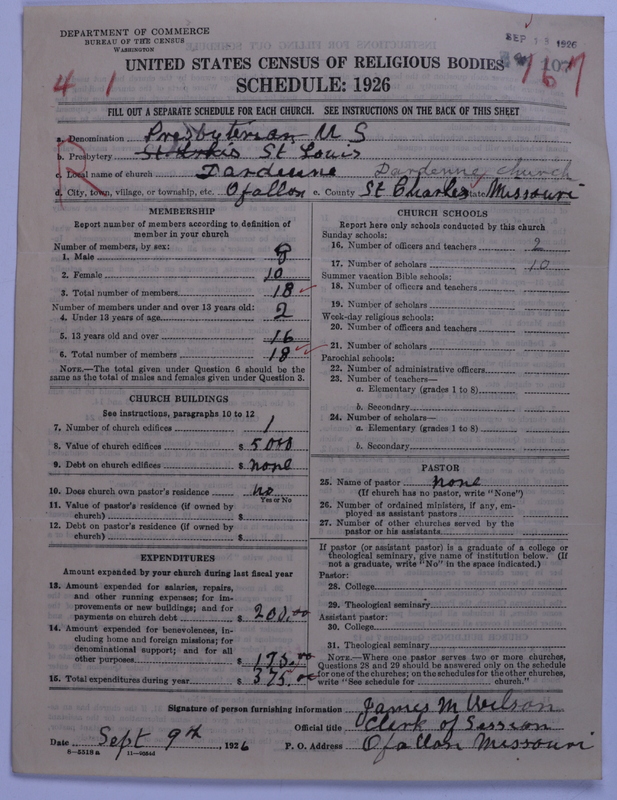 DEPARTMENT OF COMMERCE
BUREAU OF THE CENSUS
WASHINGTON
SEP 13 1926
UNITED STATES CENSUS OF RELIGIOUS BODIES
SCHEDULE: 1926
4 1
167
FILL OUT A SEPARATE SCHEDULE FOR EACH CHURCH. SEE INSTRUCTIONS ON THE BACK OF THIS SHEET
a. Denomination Presbyterian U S
b. Presbytery St Louis
c. Local name of church Dardenne Dardenne church
d. City, town, village, or township, etc. Ofallon e. County St Charles State Missouri
R
MEMBERSHIP
Report number of members according to definition of member in your church
Number of members, by sex:
1. Male 8
2. Female 10
3. Total number of members 18
Number of members under and over 13 years old:
4. Under 13 years of age 2
5. 13 years old and over 16
6. Total number of members 18
NOTE.—The total given under Question 6 should be the same as the total of males and females given under Question 3.
CHURCH BUILDINGS
See instructions, paragraphs 10 to 12
7. Number of church edifices 1
8. Value of church edifices $ 5000
9. Debt on church edifices $ none
10. Does church own pastor's residence no
Yes or No
11. Value of pastor's residence (if owned by church) $
12. Debt on pastor's residence (if owned by church) $
EXPENDITURES
Amount expended by your church during last fiscal year
13. Amount expended for salaries, repairs, and other running expenses; for improvements or new buildings; and for payments on church debt $ 200.00
14. Amount expended for benevolences, including home and foreign missions; for denominational support; and for all other purposes $ 175.00
15. Total expenditures during year $ 375.00
CHURCH SCHOOLS
Report here only schools conducted by this church
Sunday schools:
16. Number of officers and teachers 2
17. Number of scholars 10
Summer vacation Bible schools:
18. Number of officers and teachers
19. Number of scholars
Week-day religious schools:
20. Number of officers and teachers
21. Number of scholars
Parochial schools:
22. Number of administrative officers
23. Number of teachers—
a. Elementary (grades 1 to 8)
b. Secondary
24. Number of scholars—
a. Elementary (grades 1 to 8)
b. Secondary
PASTOR
25. Name of pastor none
(If church has no pastor, write "None")
26. Number of ordained ministers, if any, employed as assistant pastors
27. Number of other churches served by the pastor or his assistants
If pastor (or assistant pastor) is a graduate of a college or theological seminary, give name of institution below. (If not a graduate, write "No" in the space indicated.)
Pastor:
28. College
29. Theological seminary
Assistant pastor:
30. College
31. Theological seminary
NOTE.—Where one pastor serves two or more churches, Questions 28 and 29 should be answered only on the schedule for one of the churches; on the schedules for the other churches, write "See schedule for church."
Signature of person furnishing information James M Wilson
Official title Clerk of Session
Date Sept 9th, 1926 P. O. Address Ofallon Missouri
8—5518a 11—9064d